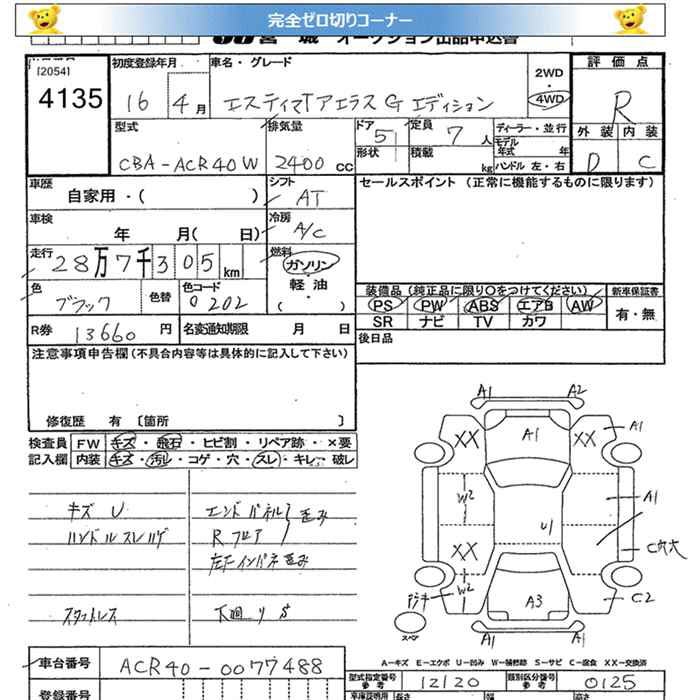 完全ゼロ切りコーナー
宮城 オークション出品申込書
[2054]
4135
初度登録年月
16 4月
車名・グレード
エスティマT アエラス G エディション
2WD
4WD
評価点
R
外装 内装
D C
型式
CBA-ACR40W
排気量
2400 cc
ドア 5
形状
定員 7 人
積載 kg
ディーラー・並行
モデル年式 年
ハンドル 左・右
車歴
自家用・( )
シフト
AT
セールスポイント (正常に機能するものに限ります)
車検
年 月( 日)
冷房
A/C
走行
28万7千305km
燃料
ガソリン
・
軽油
( )
色
ブラック
色替
色コード
0202
装備品(純正品に限り〇をつけてください)
PS PW ABS エアB AW
SR ナビ TV カワ
新車保証書
有・無
R券 13660円
名変通知期限 月 日
後日品
注意事項申告欄(不具合内容等は具体的に記入して下さい)
修復歴 有 [箇所 ]
検査員記入欄
FW キズ・飛石・ヒビ割・リペア跡・×要
内装 キズ・汚れ・コゲ・穴・スレ・キレ・破レ
キズ U
ハンドルスレハゲ
スタットレス
エンドパネル 歪み
Rフロア
左下インパネ歪み
下廻りS
A1 A2
XX A1 XX A1
W2 A1
U1
XX C穴大
W2 A3 C2
スペア
A1 A1
A-キズ E-エクボ U-凹み W-補修跡 S-サビ C-腐食 XX-交換済
車台番号
ACR40-0077488
型式指定番号
参考
12120
類別区分番号
参考
0125
登録番号